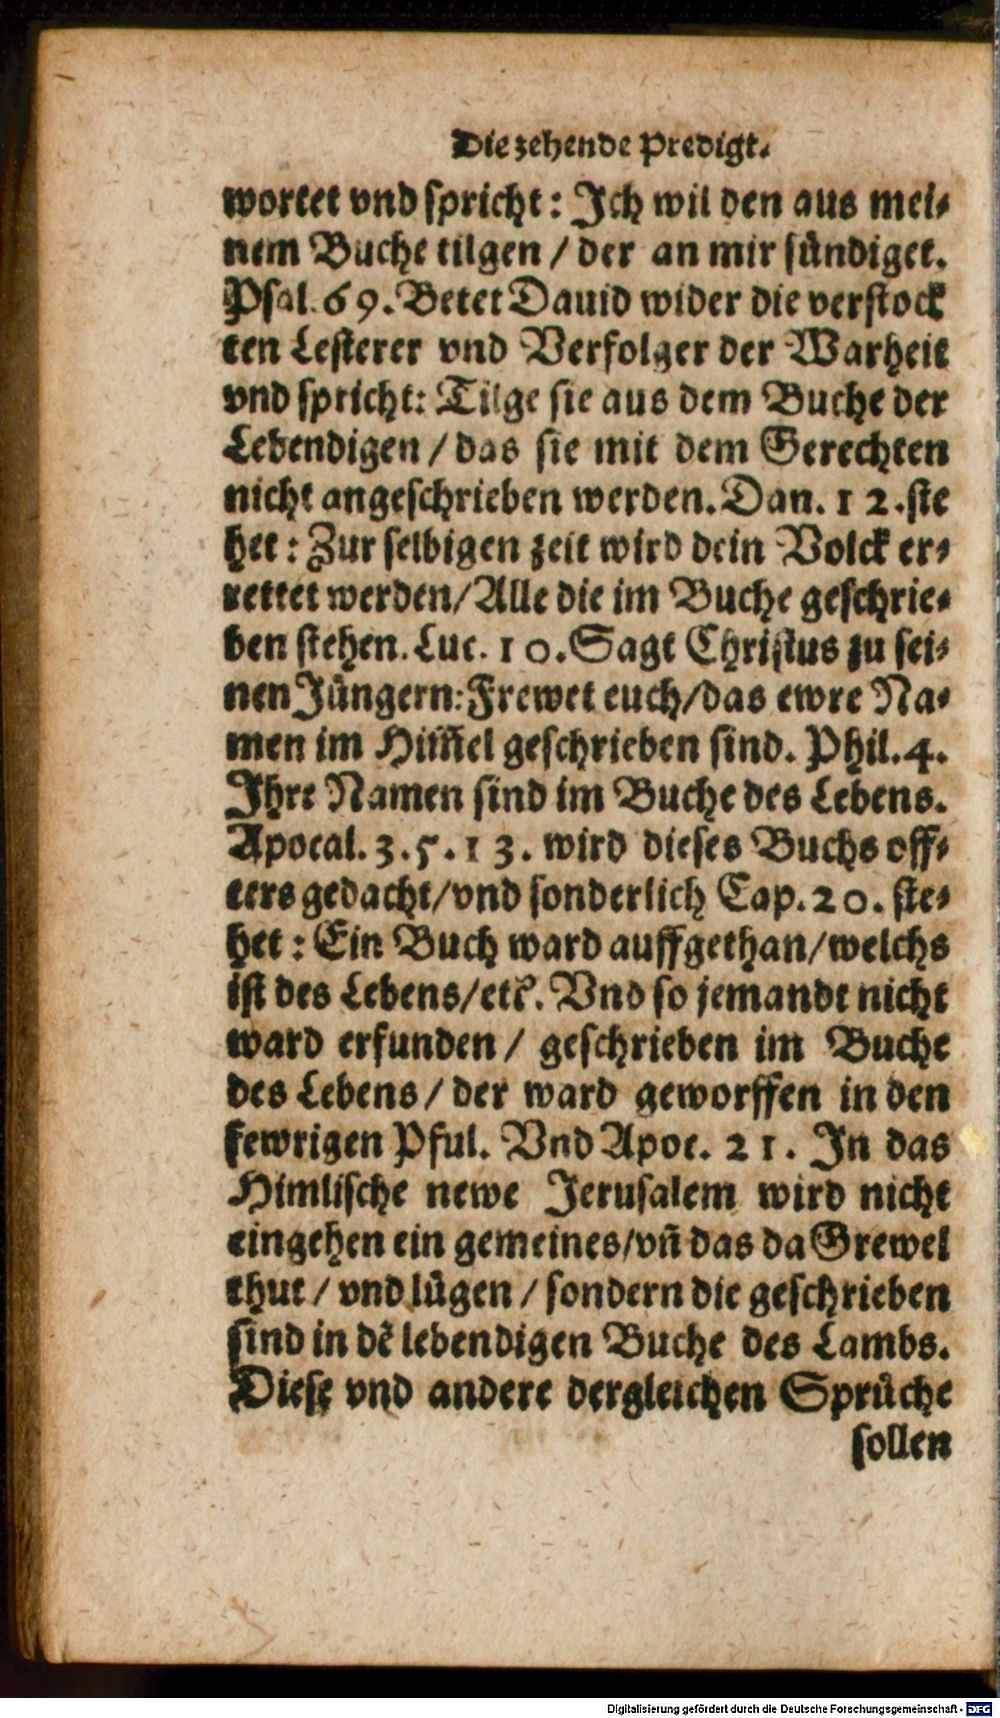 Die zehende Predigt.
wortet vnd spricht: Jch wil den aus mei-
nem Buche tilgen / der an mir sündiget.
Psal. 69. Betet Dauid wider die verstock
ten Lesterer vnd Verfolger der Warheit
vnd spricht: Tilge sie aus dem Buche der
Lebendigen / das sie mit dem Gerechten
nicht angeschrieben werden. Dan. 12. ste
het: Zur selbigen zeit wird dein Volck er-
rettet werden/Alle die im Buche geschrie-
ben stehen. Luc. 10. Sagt Christus zu sei-
nen Jüngern: Frewet euch/das ewre Na-
men im Him̃el geschrieben sind. Phil. 4.
Jhre Namen sind im Buche des Lebens.
Apocal. 3. 5. 13. wird dieses Buchs off-
ters gedacht/vnd sonderlich Cap. 20. ste-
het: Ein Buch ward auffgethan/welchs
ist des Lebens/etc. Vnd so jemandt nicht
ward erfunden / geschrieben im Buche
des Lebens / der ward geworffen in den
fewrigen Pful. Vnd Apoc. 21. Jn das
Himlische newe Jerusalem wird nicht
eingehen ein gemeines/vñ das da Grewel
thut / vnd lügen / sondern die geschrieben
sind in dẽ lebendigen Buche des Lambs.
Diese vnd andere dergleichen Sprüche
sollen
Digitalisierung gefördert durch die Deutsche Forschungsgemeinschaft - DFG